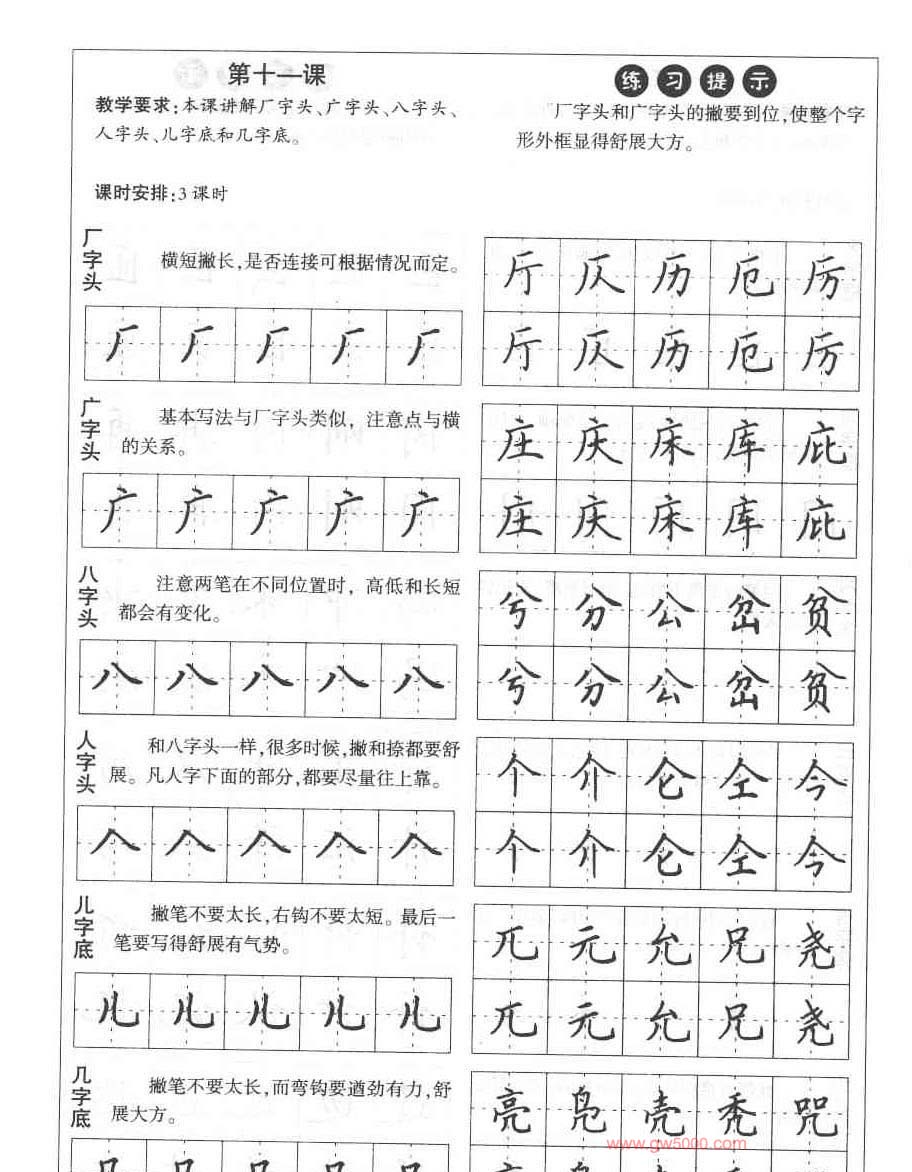 第十一课
教学要求:本课讲解厂字头、广字头、八字头、
人字头、儿字底和几字底。
课时安排:3课时
练习提示
厂字头和广字头的撇要到位,使整个字
形外框显得舒展大方。
厂字头
横短撇长,是否连接可根据情况而定。
厂厂厂厂厂
厅仄历厄厉
厅仄历厄厉
广字头
基本写法与厂字头类似，注意点与横
的关系。
广广广广广
庄庆床库庇
庄庆床库庇
八字头
注意两笔在不同位置时，高低和长短
都会有变化。
八八八八八
兮分公岔贫
兮分公岔贫
人字头
和八字头一样,很多时候,撇和捺都要舒
展。凡人字下面的部分,都要尽量往上靠。
人人人人人
个介仑仝今
个介仑仝今
儿字底
撇笔不要太长,右钩不要太短。最后一
笔要写得舒展有气势。
儿儿儿儿儿
兀元允兄尧
兀元允兄尧
几字底
撇笔不要太长,而弯钩要遒劲有力,舒
展大方。
亮凫壳秃咒
www.gw5000.com